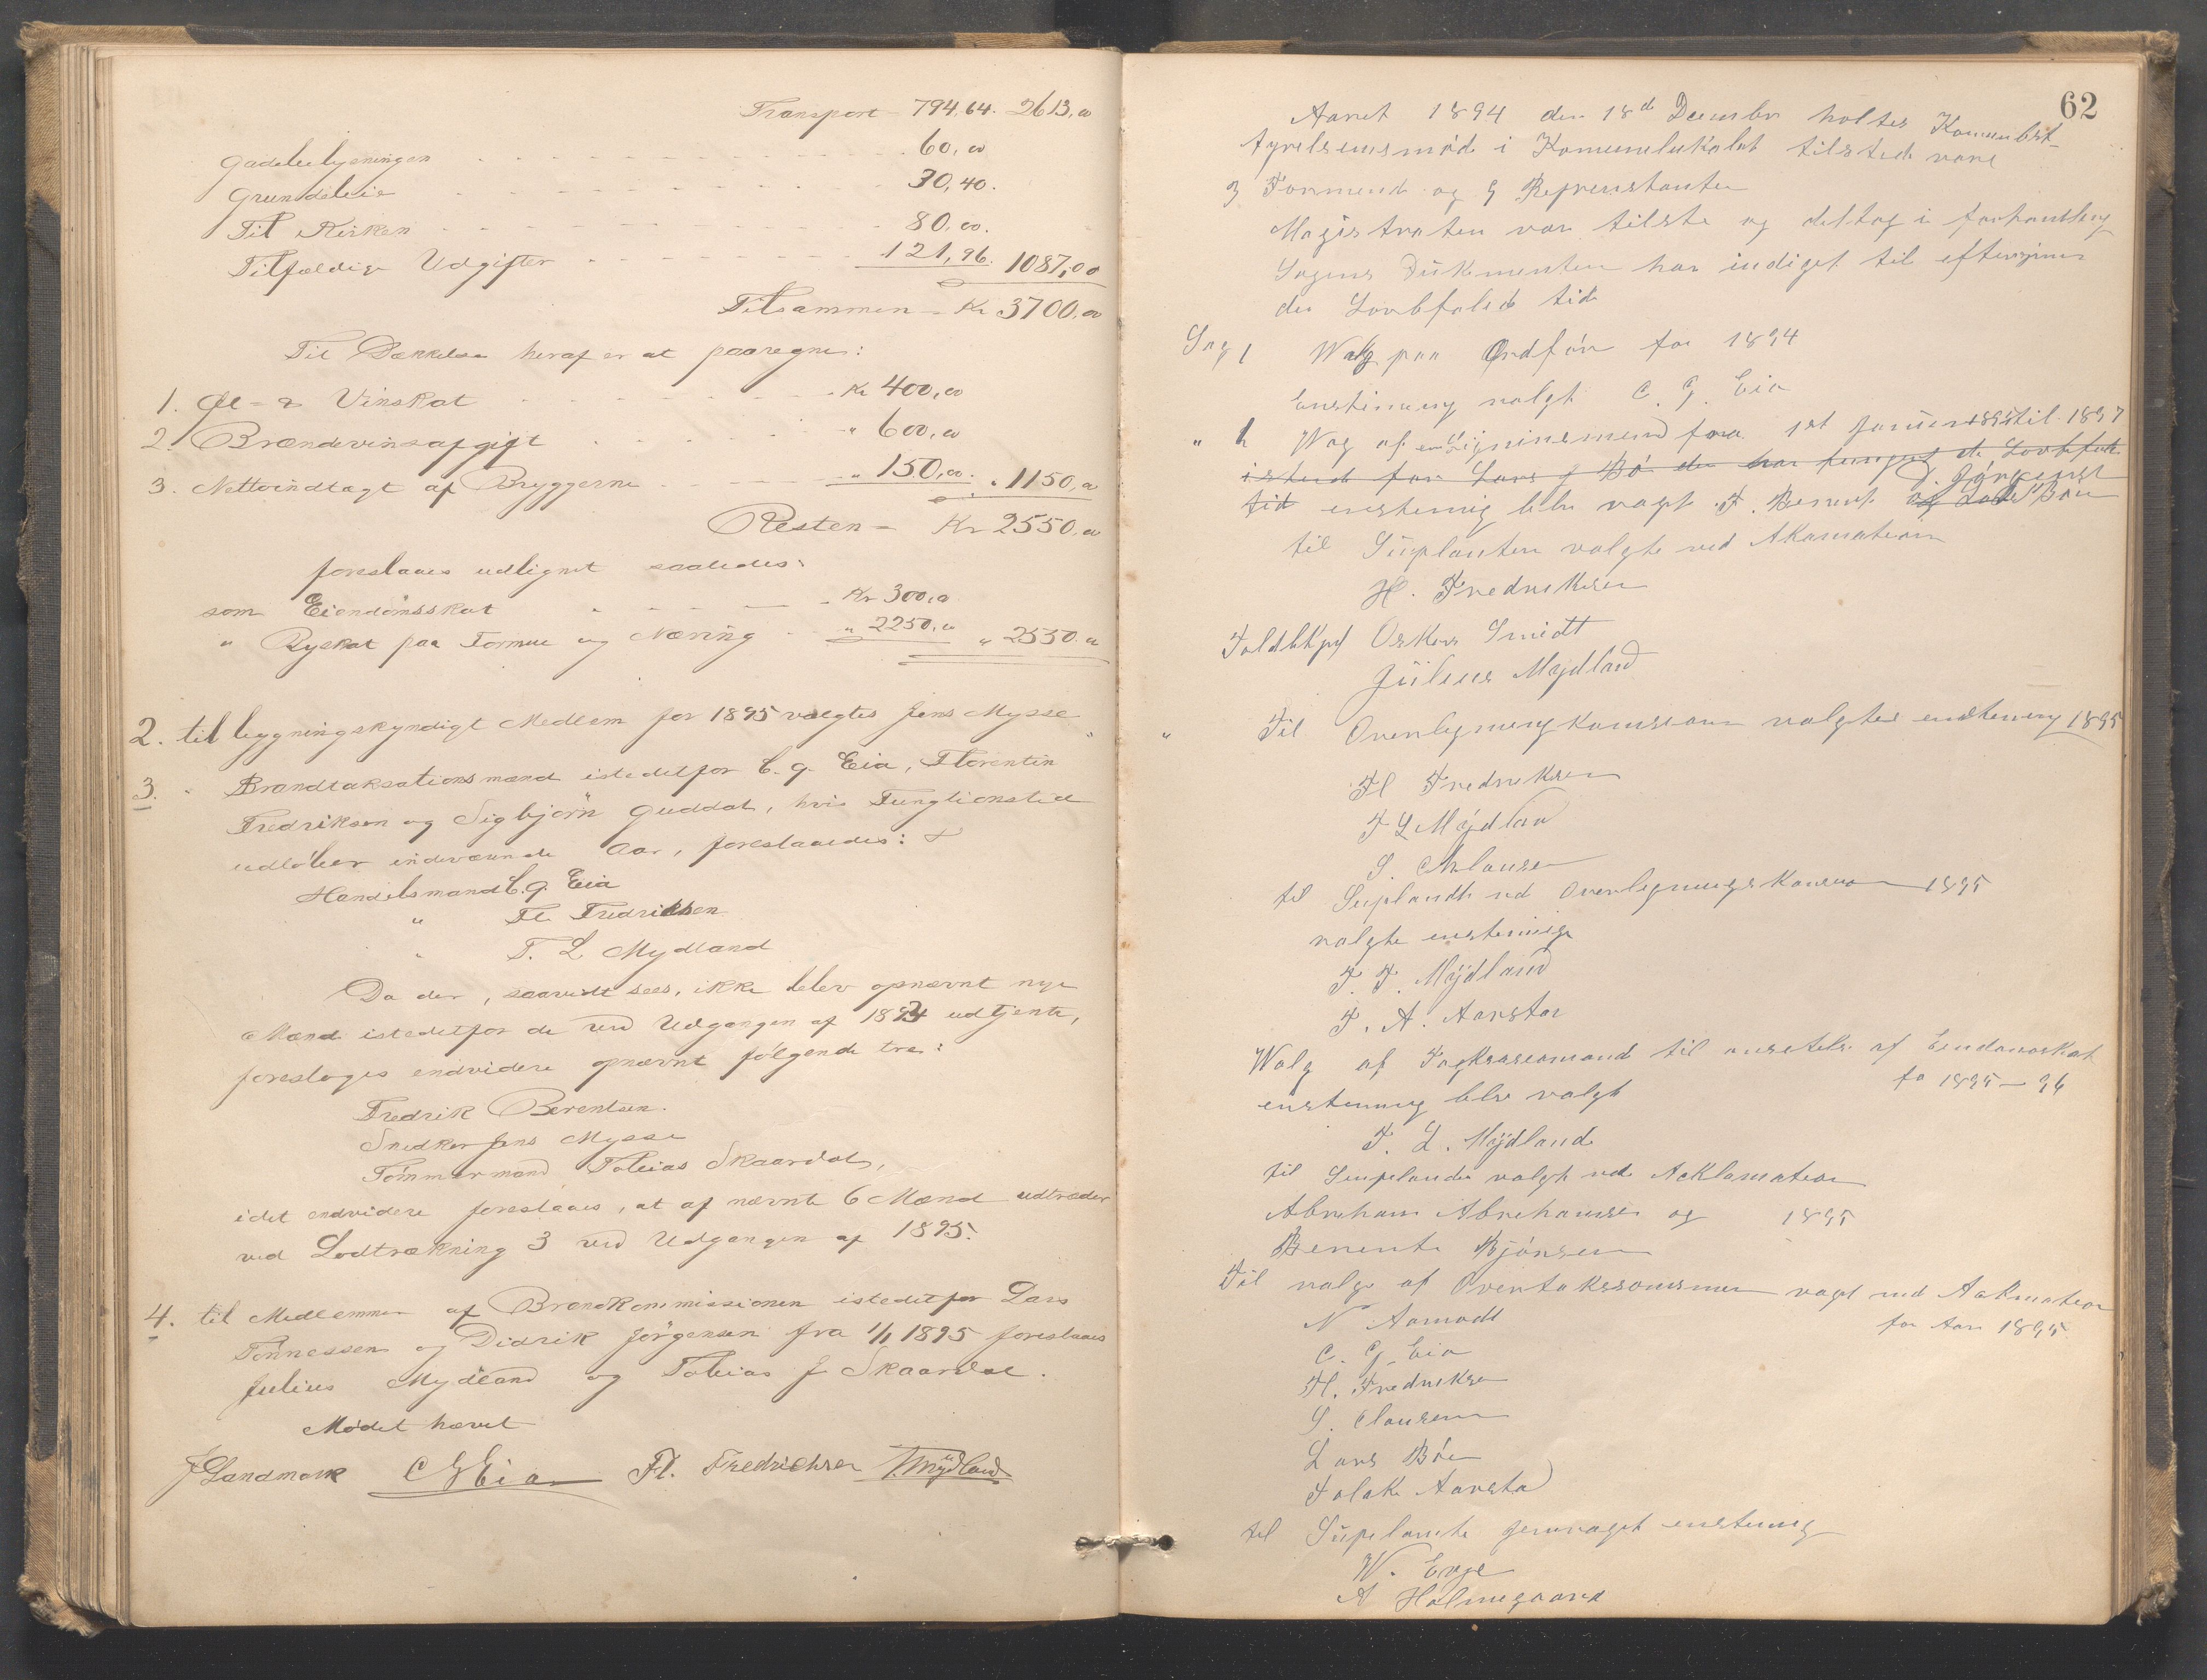 Transport 794,64. 2613,00
Gadebelysningen 60,00
Grundeleie 30,40.
Til Kirken 80,00.
Tilfældige Udgifter 121,96. 1087,00
Tilsammen - Kr 3700,00
Til Dækkelse heraf er at paaregnes:
1. Øl- & Vinskat Kr 400,00
2. Brændevinsafgift " 600,00
3. Nettoindtægt af Bryggerne " 150,00. " 1150,00
Resten - Kr 2550,00
foreslaaes udlignet saaledes:
som Eiendomsskat Kr 300,00
" Byskat paa Formue og Næring " 2250,00 " 2550.00
2. til bygningskyndigt Medlem for 1895 valgtes Jens Mysse
3. " Brandtaksationsmænd istedetfor C. G. Eia, Florentin
Fredriksen og Sigbjörn Guddal, hvis Fungtionstid
udløber indeværende Aar, foreslaaedes:
Handelsmand C. G. Eia
" Fl. Fredriksen
" T. L Mydland
Da der, saavidt sees, ikke blev opnævnt nye
Mænd istedetfor de ved Udgangen af 1893 udtjente,
foresloges endvidere opnævnt følgende tre:
Fredrik Berentsen.
Snedker Jens Mysse
Tömmermand Tobias Skaardal,
idet endvidere foreslaaes, at af nævnte 6 Mænd udtræder
ved Lodtrækning 3 ved Udgangen af 1895.
4. til Medlemmer af Brandkommissionen istedetfor Lars
Tönnessen og Didrik Jörgensen fra 1/1 1895 foreslaaes
Julius Mydland og Tobias J Skaardal.
Mödet hævet
J Landmark C G Eia Fl. Fredrichsen T. Mÿdland
62
Aaret 1894 den 18de Decembr holtes Komunebst
tyrelsensmöd i Komunelukalet tilsted vare
3 Formend og 9 Representanter
Magistraten var tilste og deltog i forhandling
Sagens Dukmenter har indliget til eftersyn
den Lovbfaled tid
Sag 1 Walg paa Ordför for 1894
Enstimmig valgt C. G. Eia
" 2 Wag af en Ligninsmend fra 1st Januer 1895 til 1897
istend for Lars J Bö der har fungert de Lovbfal
tid enstemig blev vagt F. Berent. og Lars Böe D. Jörgenst
til Süplanter valgte ved Akamation
H. Fredriksen
Toldbkpd Osker Smidt
Jülius Mydland
" Til Overligningkomision valgtes enstemig 1895
Fl Fredriksen
T L Mÿdlan
S. Chlausen
til Suplandte ved Overligningskomision 1895
valgte enstemige
T. T. Mÿdland
T. A. Aarstad
Walg af Tagksasiomand til ansetelse af Eindomsskat
for 1895 - 96
enstemig blev valgt
T. L. Mÿdland
til Suplander valgt ved Acklamation
Abreham Abrehamsen og 1895
Berente Björnsen
Til valg af Overtakssonsmen vagt ved Aakmation
for Aar 1895
N Aamodt
C. G. Eia
Fl. Fredriksen
S. Clausen
Lars Böe
Falak Aarstad
til Süplante genvaget enstemig
W. Erge
A Holmegaard